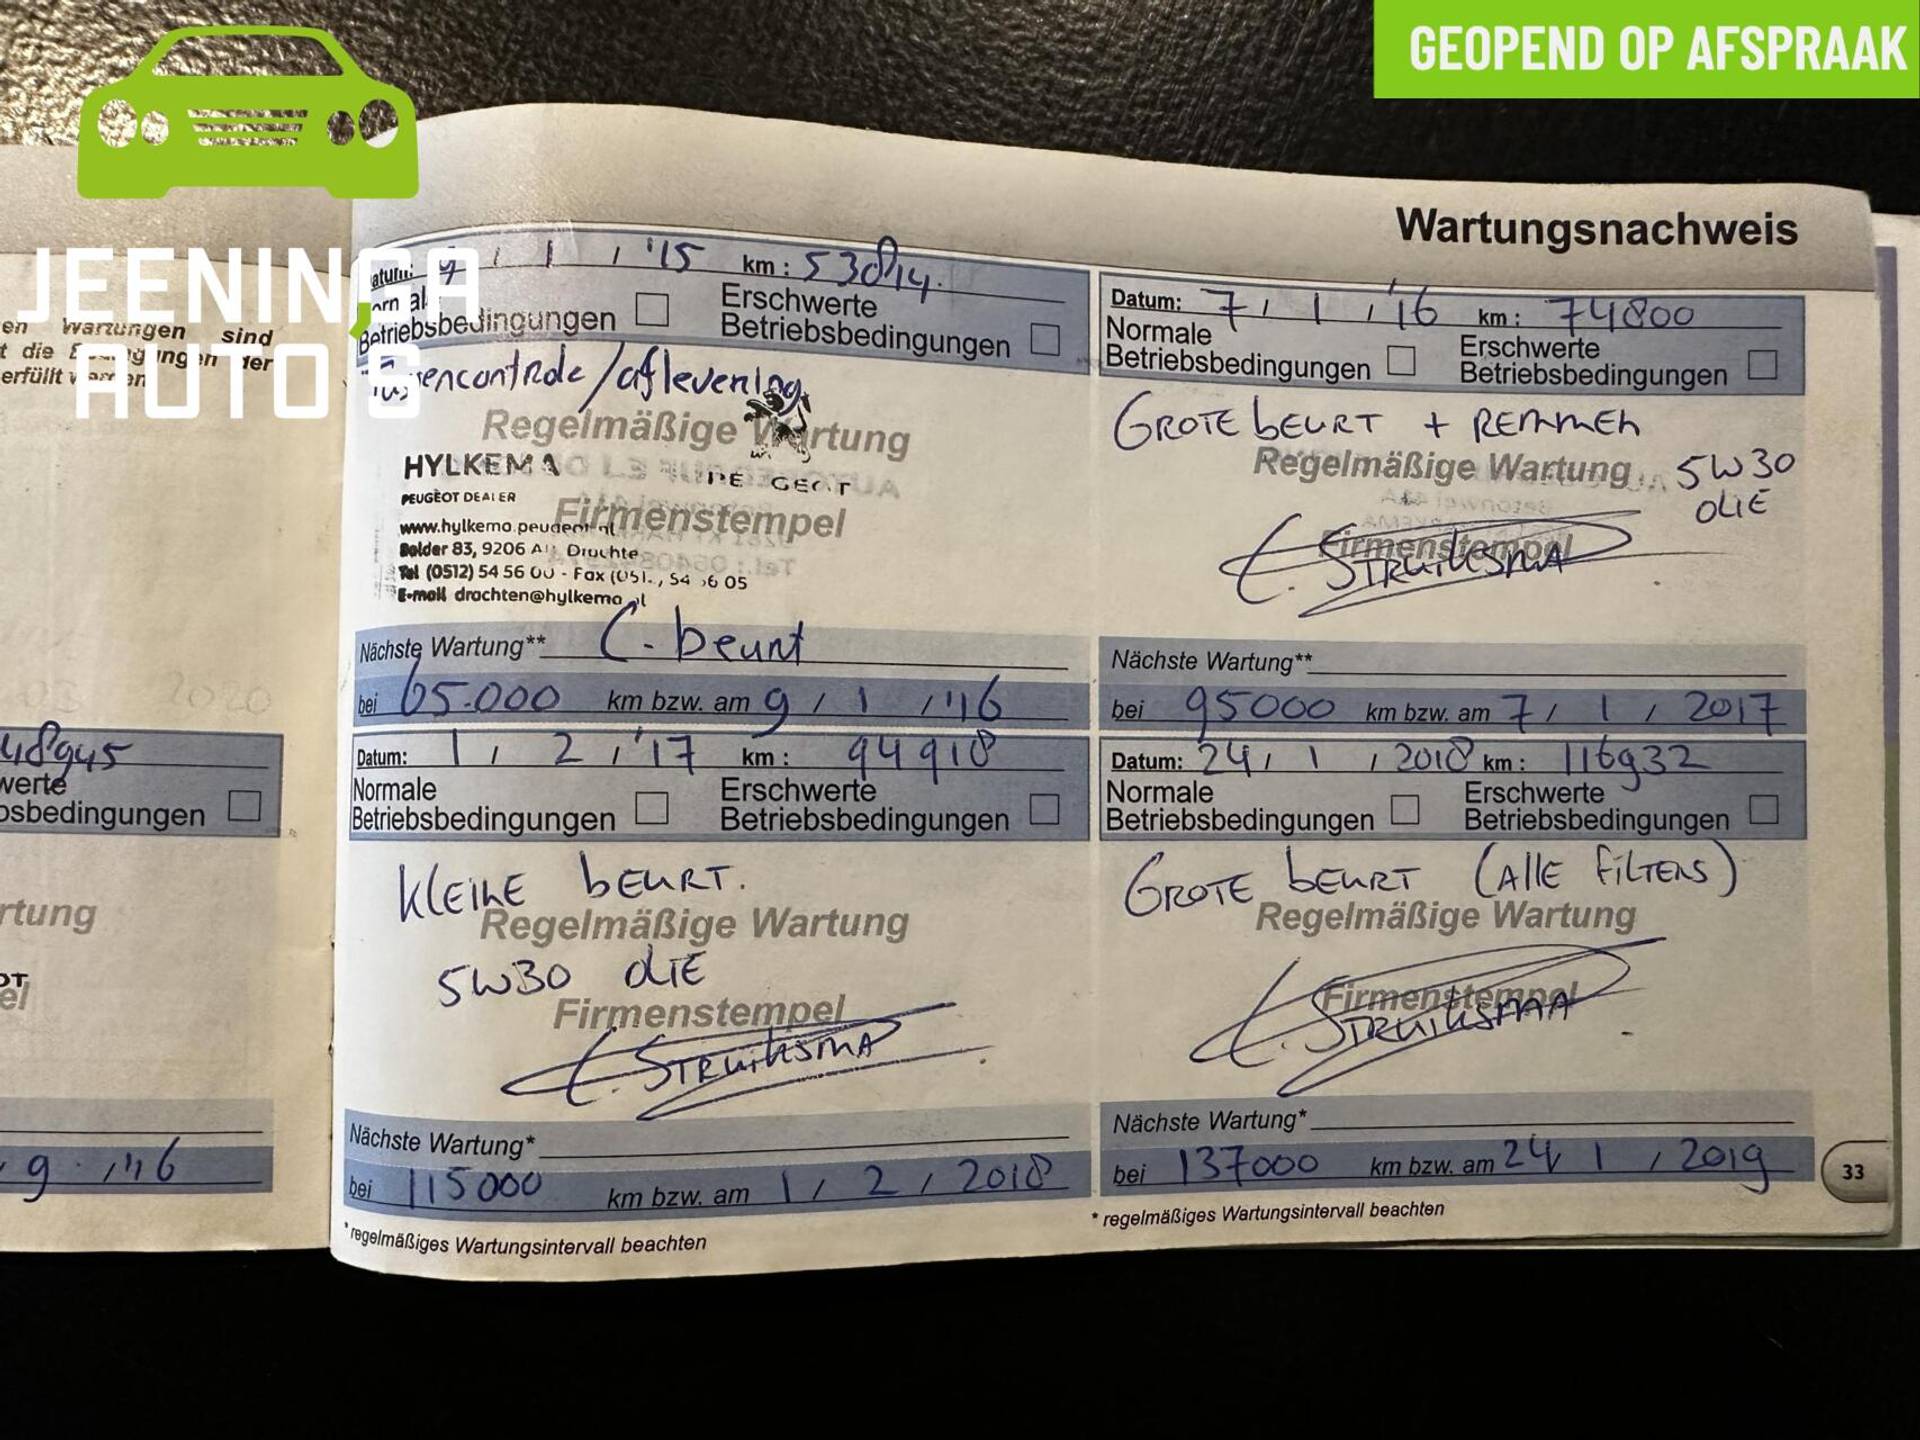 GEOPEND OP AFSPRAAK
JEENINGA
AUTO'S
Wartungsnachweis
en Wartungen sind
t die Bedingungen der
erfüllt werden
2020
48945
werte
bsbedingungen
rtung
OT
el
9 / '16
Datum: 9 / 1 / '15 km : 53814.
Normale
Betriebsbedingungen
Erschwerte
Betriebsbedingungen
Tussencontrole/aflevering
Regelmäßige Wartung
HYLKEMA PEUGEOT
PEUGEOT DEALER
Firmenstempel
www.hylkema.peugeot.nl
Bolder 83, 9206 A Drachte
Tel (0512) 54 56 00 - Fax (051 , 54 56 05
E-mail drachten@hylkema.nl
Nächste Wartung** C. beurt
bei 65.000 km bzw. am 9 / 1 / '16
Datum: 7 / 1 / '16 km : 74800
Normale
Betriebsbedingungen
Erschwerte
Betriebsbedingungen
GROTE BEURT + REMMEN
Regelmäßige Wartung
5W30
OLIE
Firmenstempel
STRUIKSMA
Nächste Wartung**
bei 95000 km bzw. am 7 / 1 / 2017
Datum: 1 / 2 / '17 km : 94918
Normale
Betriebsbedingungen
Erschwerte
Betriebsbedingungen
KLEINE BEURT.
Regelmäßige Wartung
5W30 OLIE
Firmenstempel
STRUIKSMA
Nächste Wartung*
bei 115000 km bzw. am 1 / 2 / 2018
* regelmäßiges Wartungsintervall beachten
Datum: 24 / 1 / 2018 km : 116932
Normale
Betriebsbedingungen
Erschwerte
Betriebsbedingungen
GROTE BEURT (ALLE FILTERS)
Regelmäßige Wartung
Firmenstempel
STRUIKSMA
Nächste Wartung*
bei 137000 km bzw. am 24 / 1 / 2019
* regelmäßiges Wartungsintervall beachten
33